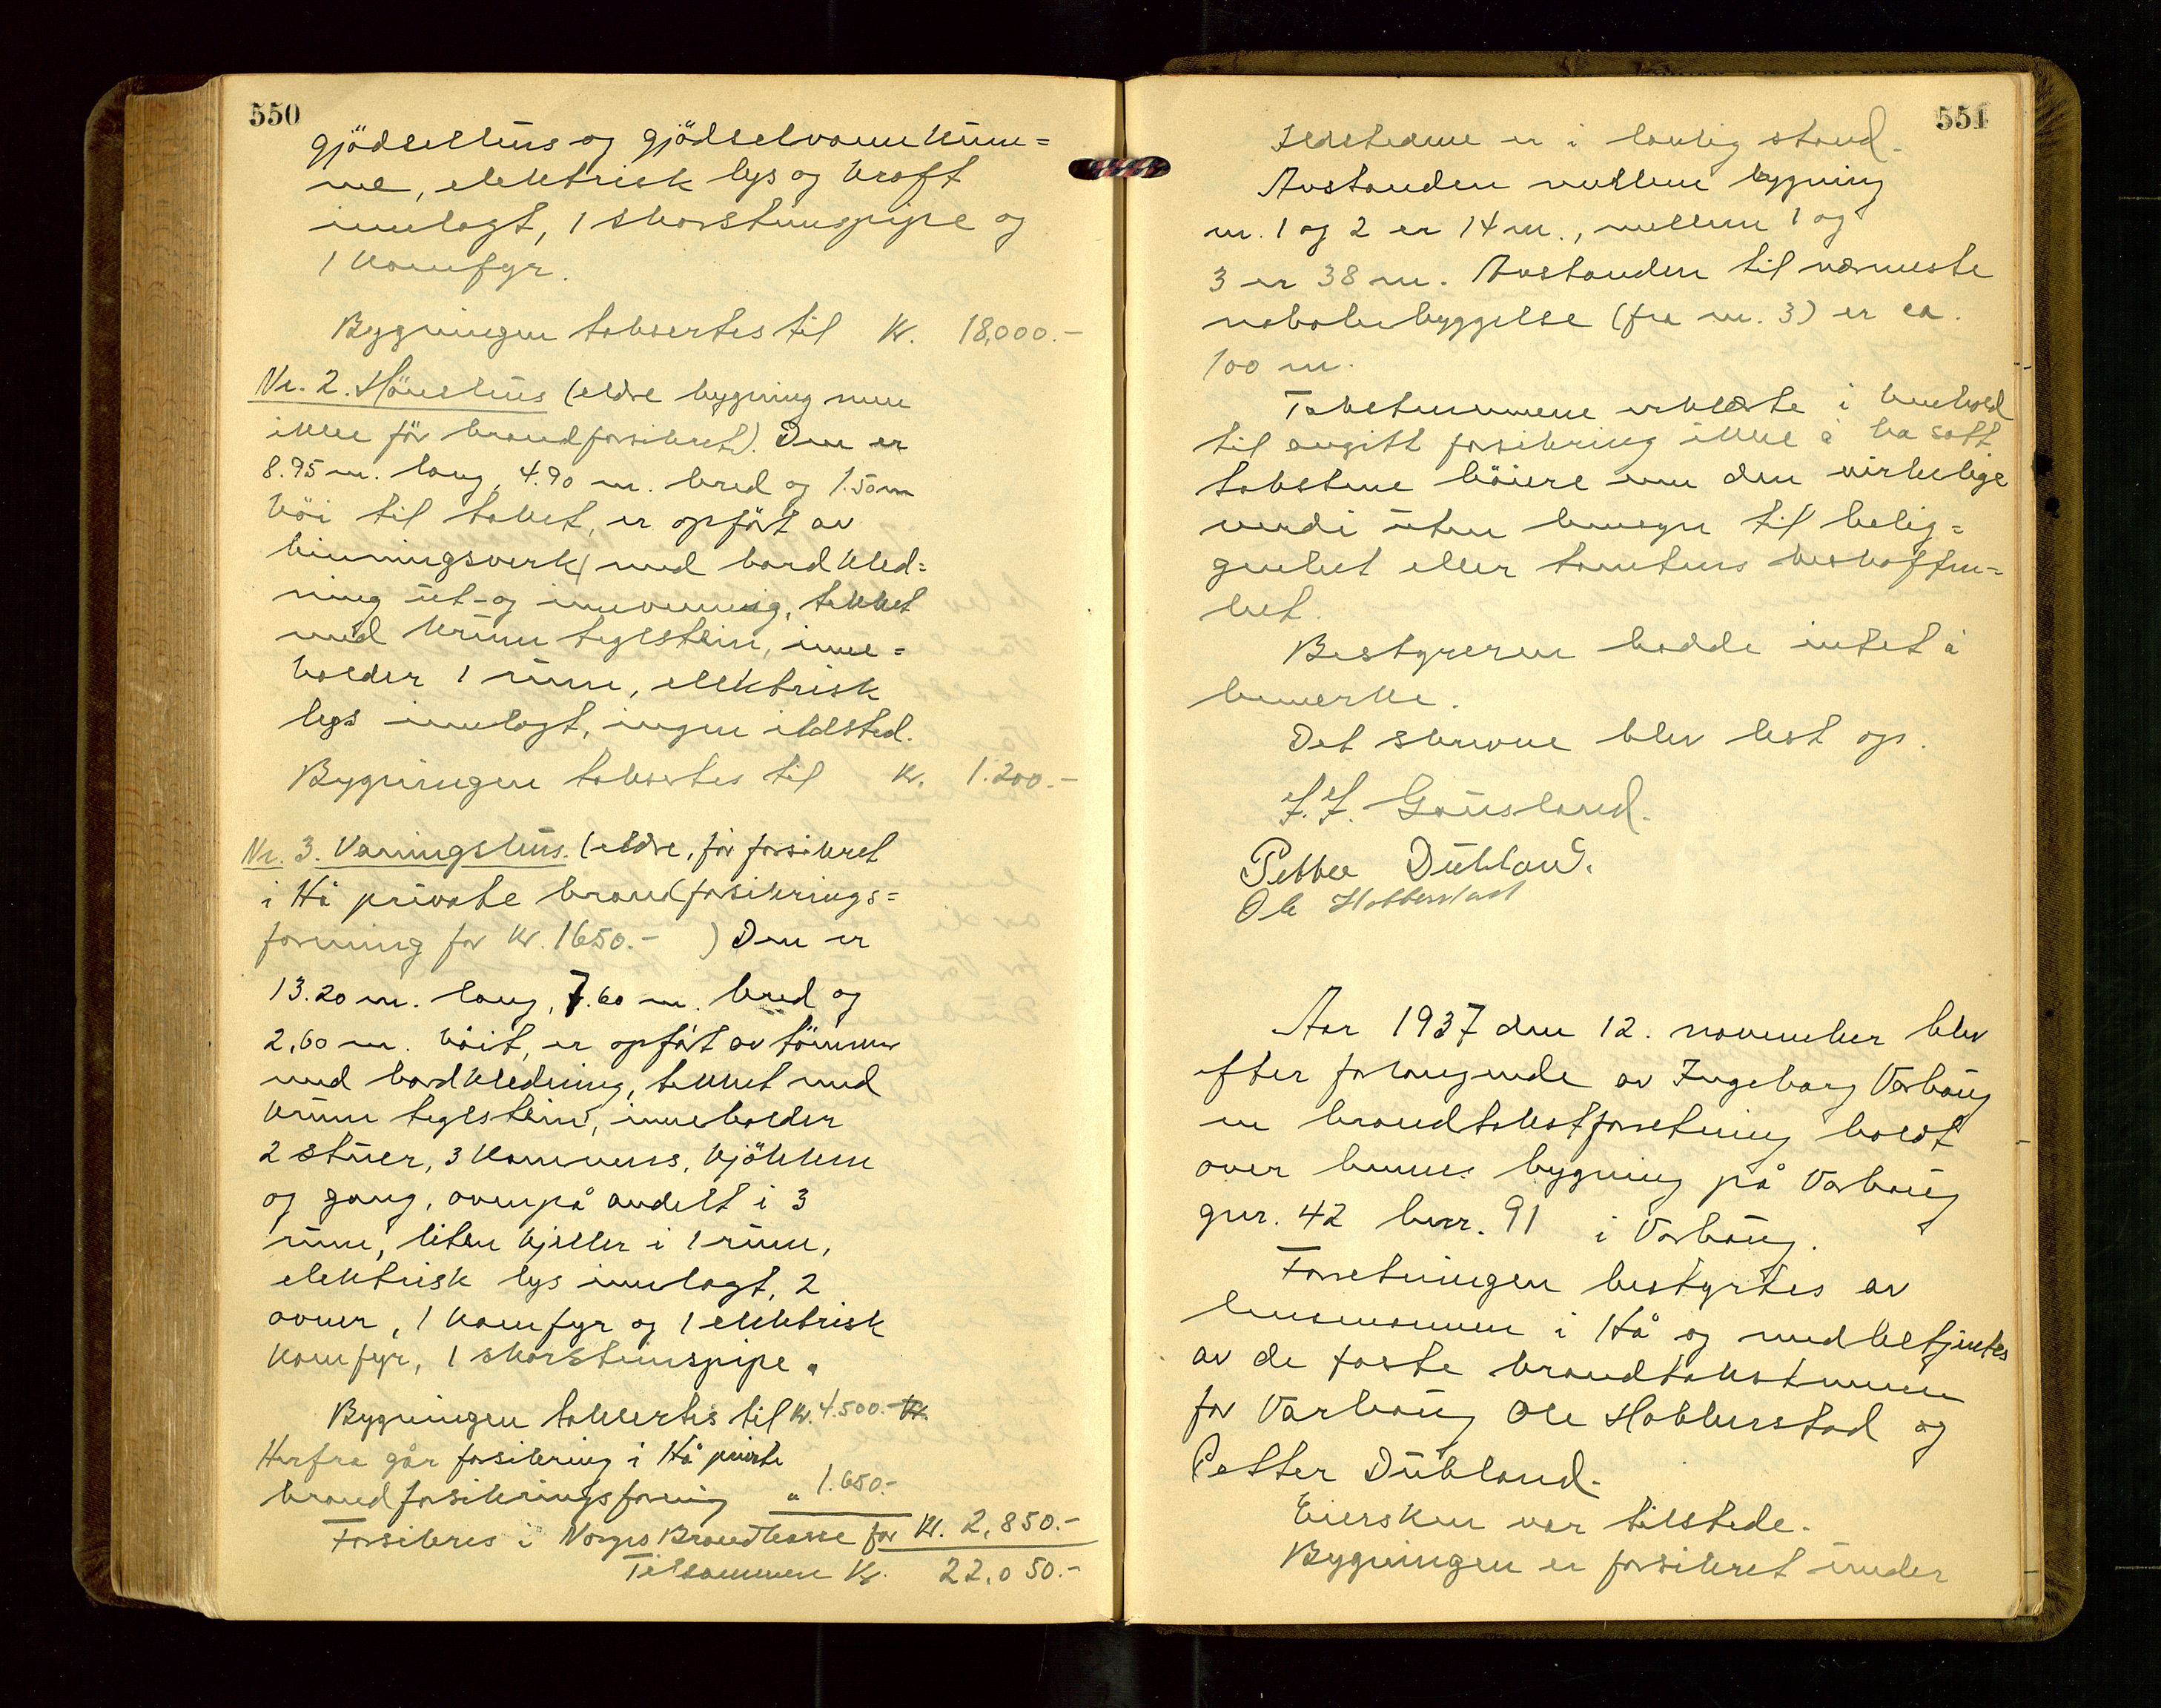 550
gjödselhus og gjödselvannkum=
me, elektrisk lys og kraft
innlagt, 1 skorstenspipe og
1 komfyr.
Bygningen taksertes til kr. 18,000.-
Nr. 2. Hönsehus (eldre bygning men
ikke för brandforsikret). Den er
8.95 m. lang, 4.90 m. bred og 1.50 m
höi til taket, er opfört av
binningsverk med bordkled=
ning ut- og innvennig, tekket
med krum teglstein, inne=
holder 1 rum, elektrisk
lys innlagt, ingen ildsted.
Bygningen taksertes til kr. 1.200.-
Nr. 3. Vaningshus. (eldre, för forsikret
i Hå private brandforsikrings=
forening for kr. 1650.- ) Den er
13.20 m. lang, 7.60 m. bred og
2,60 m. höit, er opfört av tömmer
med bordkledning, tekket med
krum teglstein, inneholder
2 stuer, 3 kammers, kjökken
og gang, ovenpå avdelt i 3
rum, liten kjeller i 1 rum,
elektrisk lys innlagt, 2
ovner, 1 komfyr og 1 elektrisk
komfyr, 1 skorsteinspipe.
Bygningen taksertes til kr. 4.500.- kr.
Herfra går forsikring i Hå private
brandforsikringsforening " 1.650.-
Forsikres i Norges Brandkasse for kr. 2,850.-
Tilsammen kr. 22.050.-
551
Ildstedene er i lovlig stand.
Avstanden mellem bygning
nr. 1 og 2 er 14 m., mellem 1 og
3 er 38 m. Avstanden til nærmeste
nabobebyggelse (fra nr. 3) er ca.
100 m.
Takstmennene erklærte i henhold
til avgitt forsikring ikke å ha satt
takstene höiere enn den virkelige
verdi uten hensyn til belig=
genhet eller tomtens beskaffen=
het.
Bestyreren hadde intet å
bemerke.
Det skrevne blev lest op.
J. J. Gausland.
Petter Dubland.
Ole Hobberstad
Aar 1937 den 12. november blev
efter forlangende av Ingeborg Varhaug
en brandtakstforretning holdt
over hennes bygning på Varhaug
gnr. 42 bnr. 91 i Varhaug.
Forretningen bestyrtes av
lensmannen i Hå og medbetjentes
av de faste brandtakstmenn
for Varhaug Ole Hobberstad og
Petter Dubland.
Eiersken var tilstede.
Bygningen er forsikret under